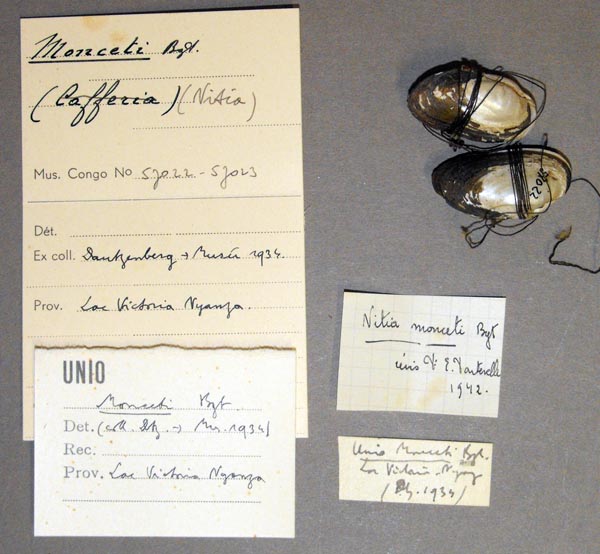 Monceti Bgt.
(Cafferia) (Nitia)
Mus. Congo No 57022-57023
Dét.
Ex coll. Dautzenberg → Musée 1934.
Prov. Lac Victoria Nyanza.
UNIO
Monceti Bgt.
Det. (coll. Dtz. → Mus. 1934)
Rec.
Prov. Lac Victoria Nyanza
57022
Nitia monceti Bgt
1942.
Unio Monceti Bgt.
Lac Victoria-Nyanz
(Dtz. 1934)